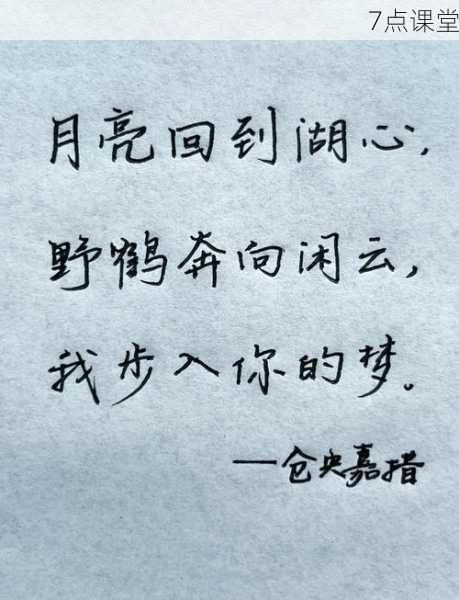 7点课堂
月亮回到湖心，
野鹤奔向闲云，
我步入你的梦。
—仓央嘉措